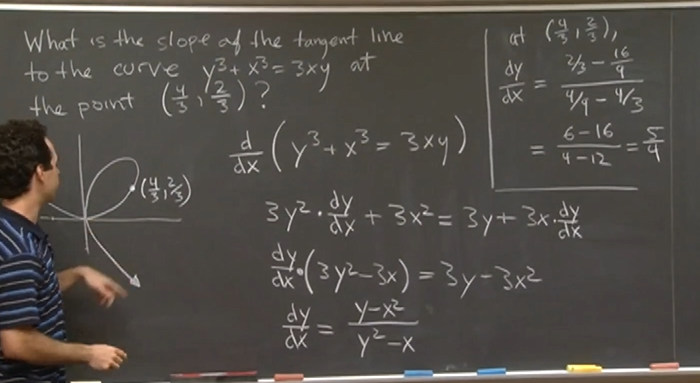 What is the slope of the tangent line
to the curve y³ + x³ = 3xy at
the point (4/3, 2/3)?
(4/3, 2/3)
d/dx (y³ + x³ = 3xy)
3y² · dy/dx + 3x² = 3y + 3x · dy/dx
dy/dx · (3y² - 3x) = 3y - 3x²
dy/dx = (y - x²)/(y² - x)
at (4/3, 2/3),
dy/dx = (2/3 - 16/9)/(4/9 - 4/3)
= (6 - 16)/(4 - 12) = 5/4